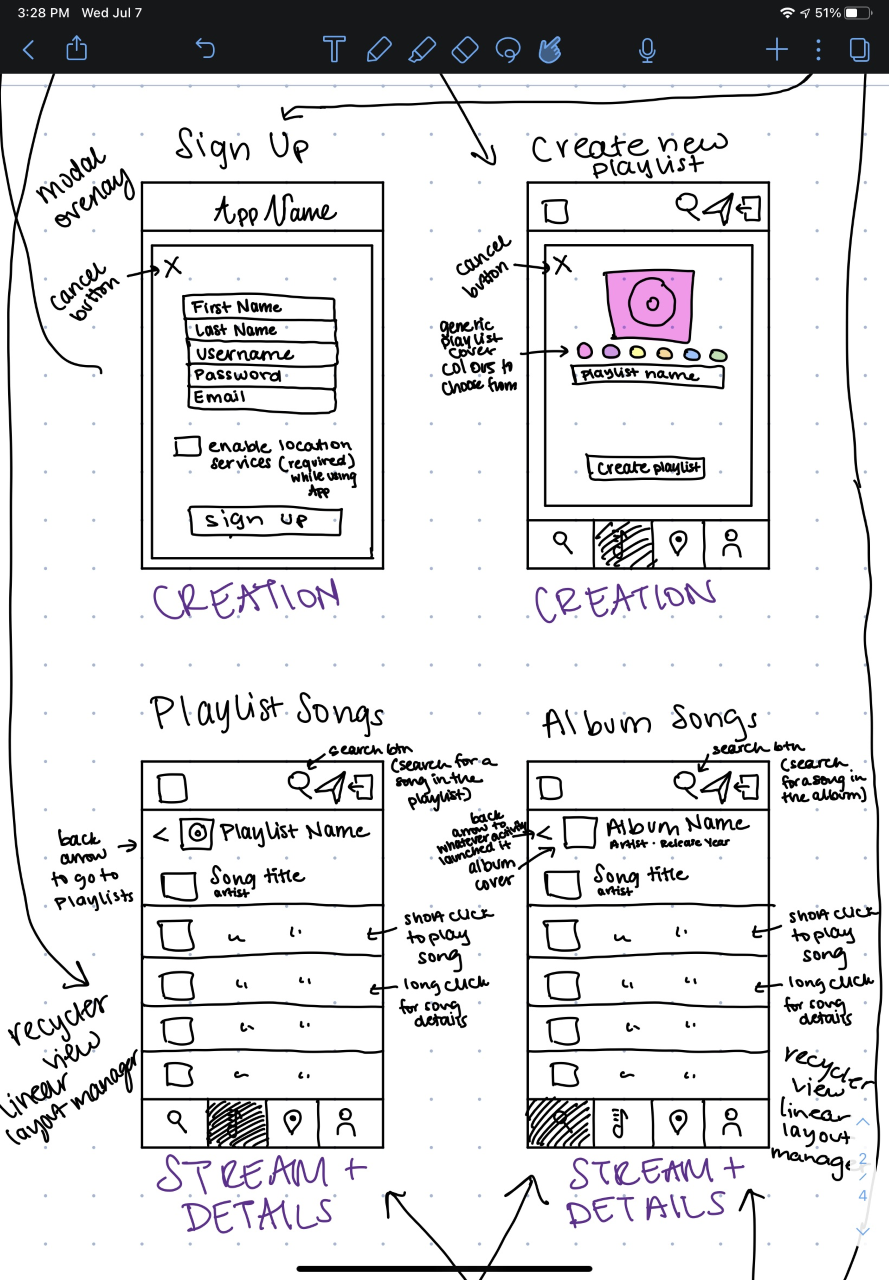 3:28 PM Wed Jul 7
51%
T
Sign Up
modal
overlay
App Name
cancel
button
X
First Name
Last Name
Username
Password
Email
enable location
services (required)
while using
App
sign up
CREATION
Create new
playlist
cancel
button
X
generic
playlist
cover
colours to
choose from
Playlist name
Create playlist
CREATION
Playlist Songs
search btn
(search for a
song in the
playlist)
back
arrow
to go to
Playlists
< Playlist Name
Song title
artist
short click
to play
song
long click
for song
details
recycler
view
linear
layout manager
STREAM +
DETAILS
Album Songs
search btn
(search
for a song in
the album)
back
arrow to
whatever activity
launched it
album
cover
< Album Name
Artist · Release Year
Song title
artist
short click
to play
song
long click
for song
details
recycler
view
linear
layout
manage
STREAM +
DETAILS
2
/
4